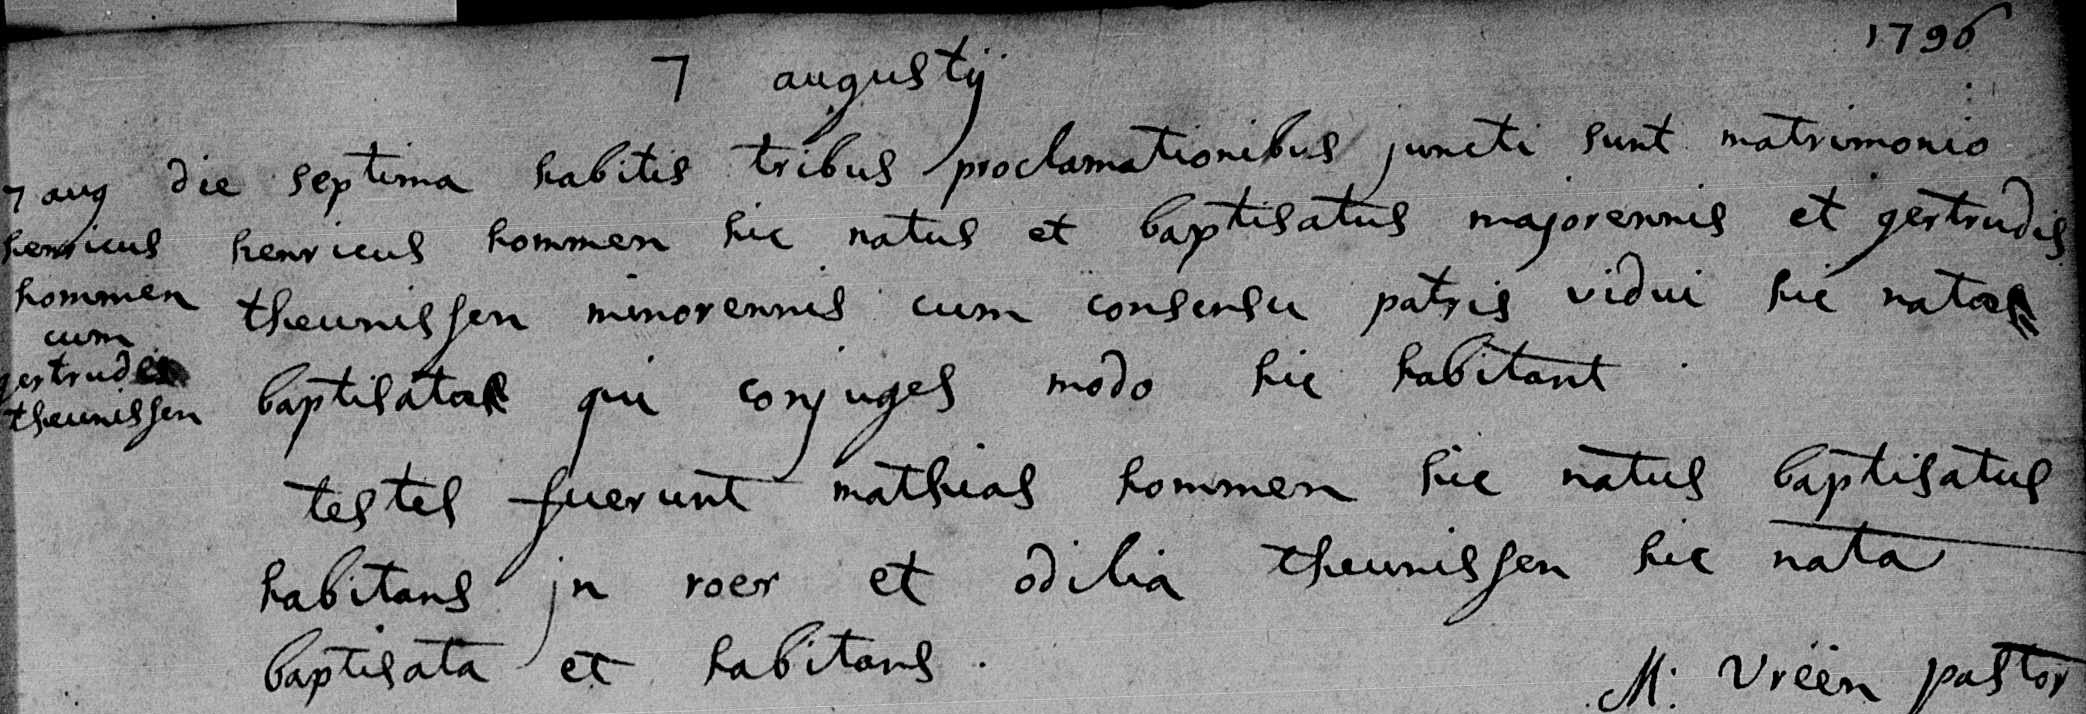 1796
7 augustij
7 aug
henricus
hommen
cum
gertrudis
theunissen
die septima habitis tribus proclamationibus juncti sunt matrimonio
henricus hommen hic natus et baptisatus majorennis et gertrudis
theunissen minorennis cum consensu patris vidui hic nata
baptisata qui conjuges modo hic habitant
testes fuerunt mathias hommen hic natus baptisatus
habitans jn roer et odilia theunissen hic nata
baptisata et habitans.
M: Vréén pastor